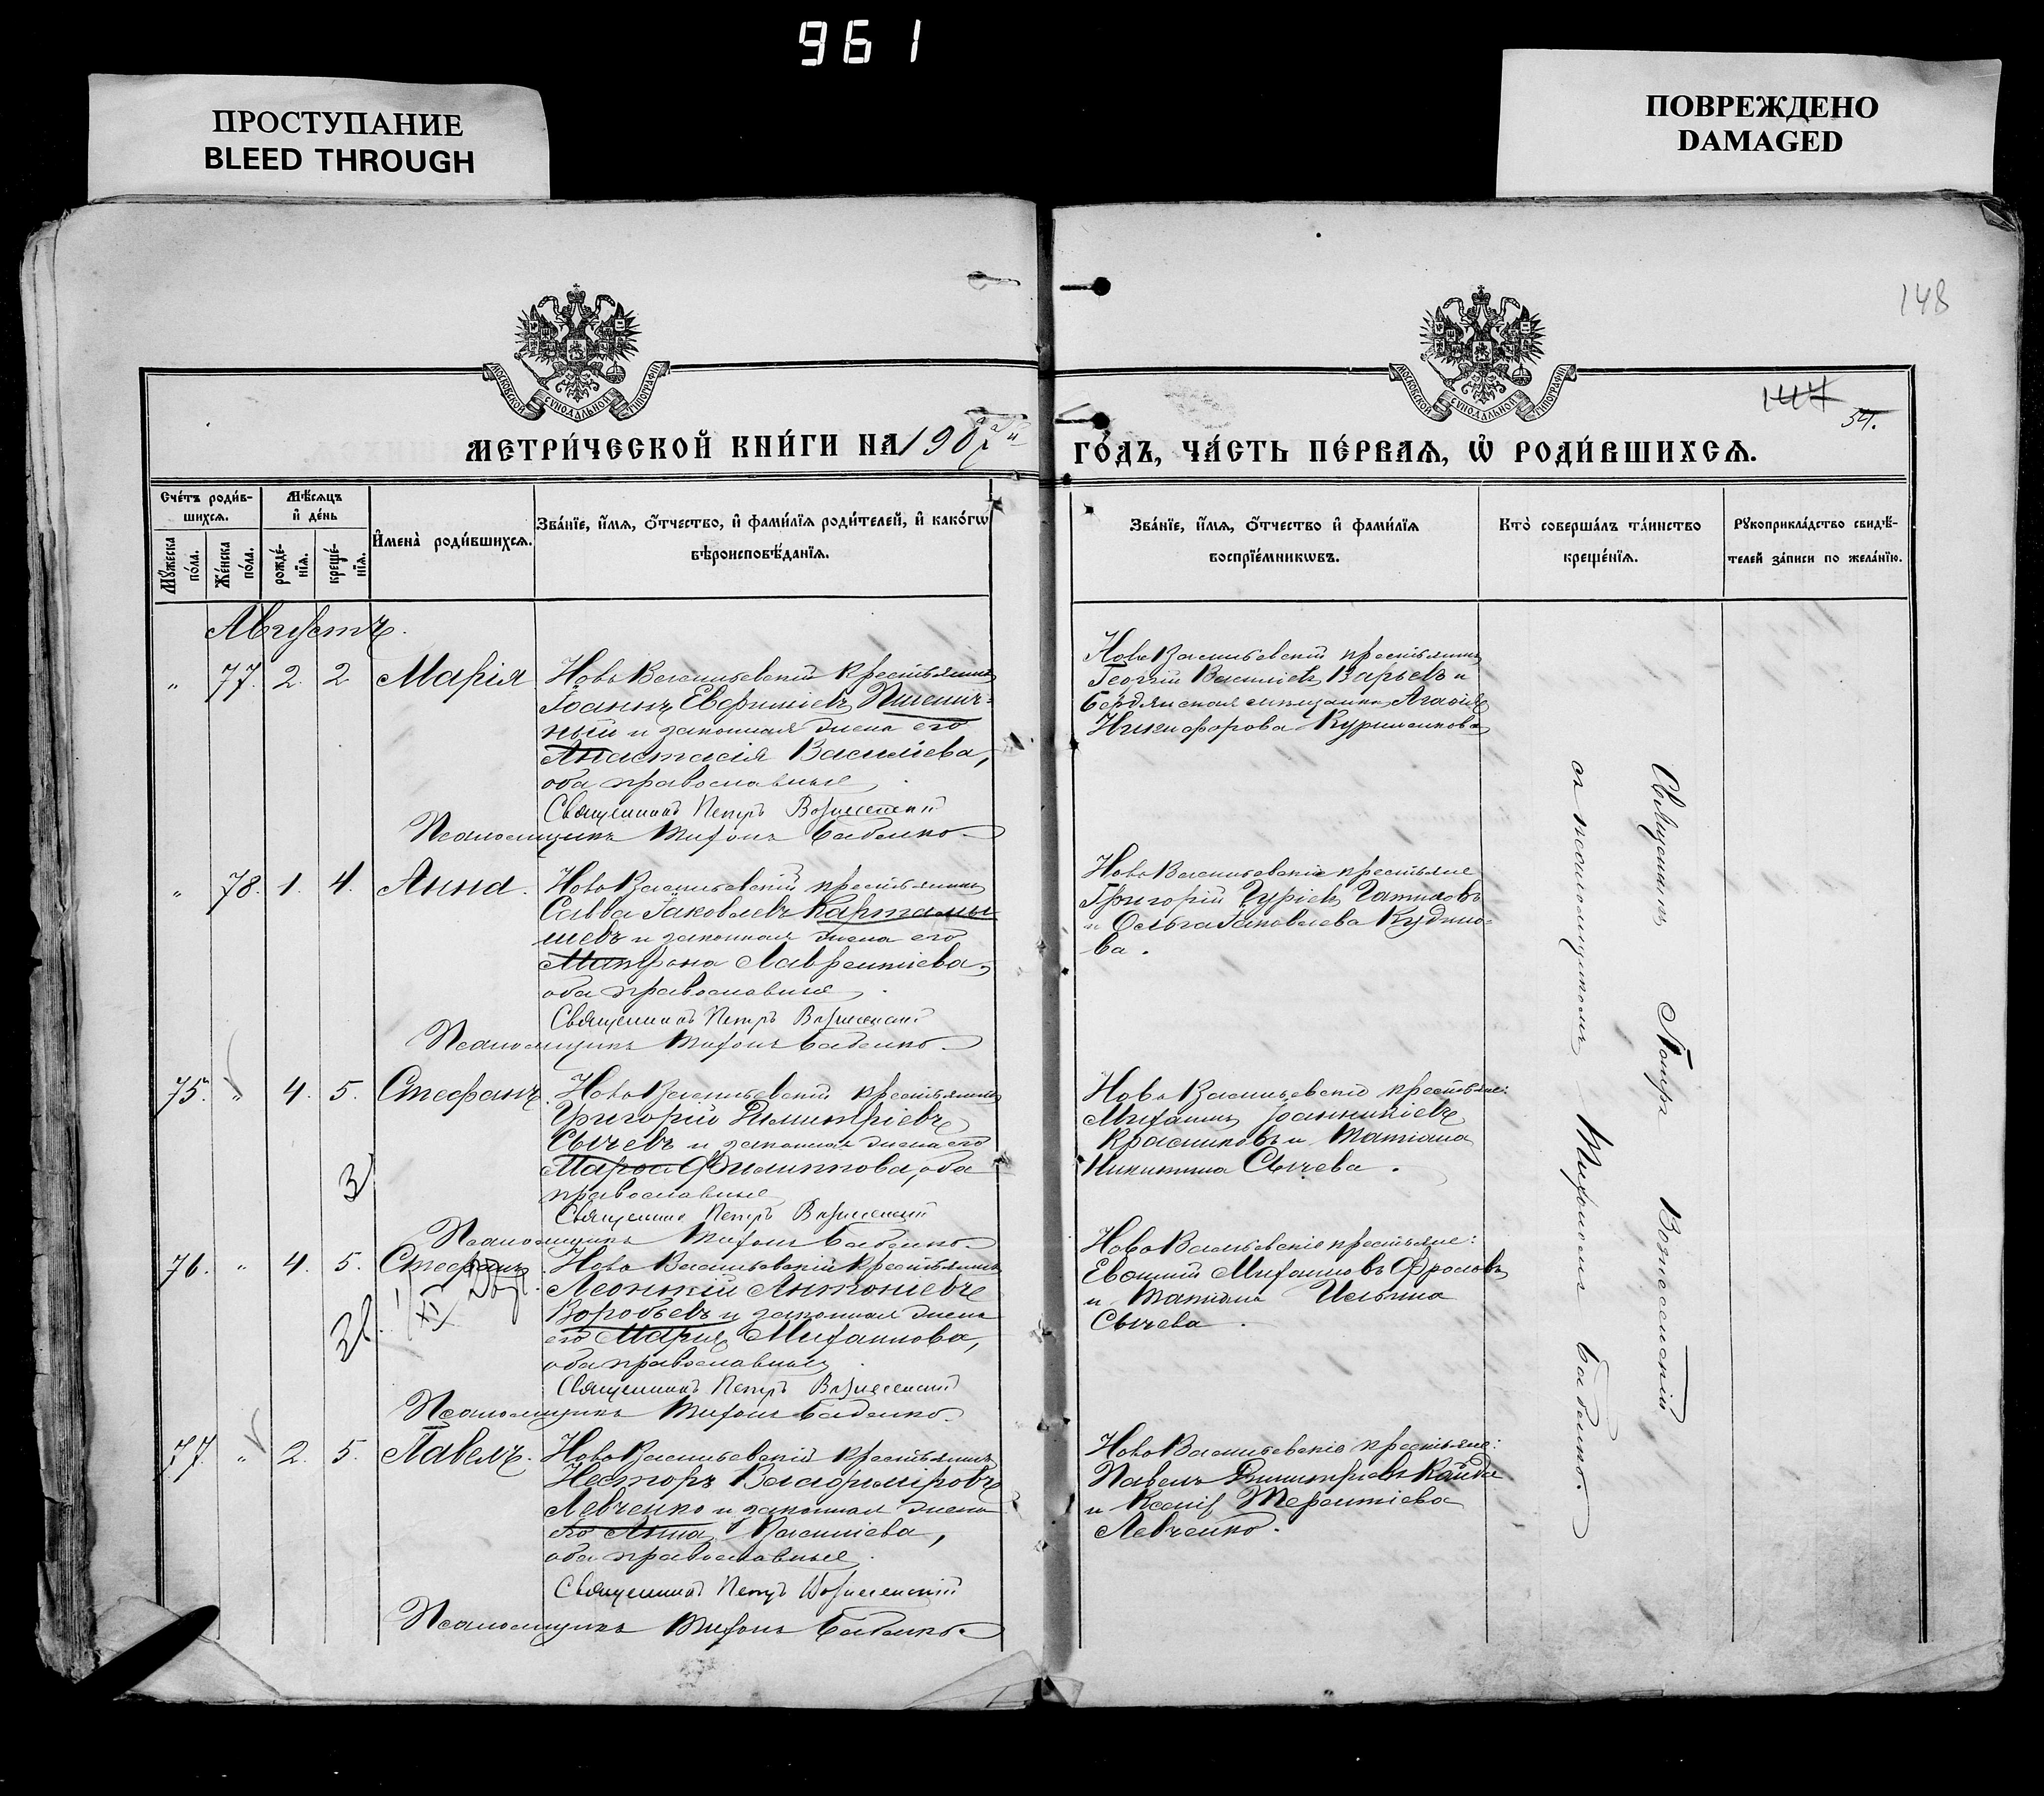 961
ПРОСТУПАНИЕ
BLEED THROUGH
ПОВРЕЖДЕНО
DAMAGED
148
МОСКОВСКОЙ СѴНОДАЛЬНОЙ ТИПОГРАФІИ
МОСКОВСКОЙ СѴНОДАЛЬНОЙ ТИПОГРАФІИ
54.
МЕТРИ́ЧЕСКОЙ КНИ́ГИ НА 1907й ГО́ДЪ, ЧА́СТЬ ПЕ́РВАѦ, Ѡ҆ РОДИ́ВШИХСѦ.
Сче́тъ роди́в-
шихсѧ.
Мꙋ́жеска по́ла.
Же́нска по́ла.
Мѣ́сѧцъ
и҆ де́нь
рожде́-
нїѧ.
креще́-
нїѧ.
И҆мена̀ роди́вшихсѧ.
Зва́нїе, и҆́мѧ, ѻ҆́тчество, и҆ фами́лїѧ роди́телей, и҆ како́гѡ
вѣроисповѣ́данїѧ.
Зва́нїе, и҆́мѧ, ѻ҆́тчество и҆ фами́лїѧ
воспрїе́мникѡвъ.
Кто̀ соверша́лъ та́инство
креще́нїѧ.
Рꙋкоприкла́дство свидѣ́-
телей за́писи по жела́нїю.
Августъ.
" 77. 2. 2 Марія
НовоВасильевскій крестьянинъ
Іоаннъ Евфиміевъ Пшенич-
ный и законная жена его
Анастасія Василіева,
оба православные
Священникъ Петръ Вознесенскій
Псаломщикъ Тихонъ Бабенко.
НовоВасильевскій крестьянинъ
Георгій Василіевъ Карьевъ и
Бердянская мѣщанка Агафія
Никифорова
" 78. 1. 4. Анна.
НовоВасильевскій крестьянинъ
Савва Іаковлевъ Картамы-
шевъ и законная жена его
Матрона Лаврентіева,
оба православные
Священникъ Петръ Вознесенскій
Псаломщикъ Тихонъ Бабенко.
НовоВасильевскіе крестьяне
Григорій Гуріевъ Гатиловъ
и Ольга Іаковлева Кудино-
ва.
75. " 4. 5. Стефанъ.
НовоВасильевскій крестьянинъ
Григорій Димитріевъ
Сычевъ и законная жена его
Марфа Филиппова, оба
православные
Священникъ Петръ Вознесенскій
Псаломщикъ Тихонъ Бабенко.
НовоВасильевскіе крестьяне:
Михаилъ Іоанникіевъ
Красниковъ и Татіана
Никитина Сычева.
76. " 4. 5. Стефанъ.
НовоВасильевскій крестьянинъ
Леонтій Антоніевъ
Воробьевъ и законная жена
его Марія Михаилова,
оба православные
Священникъ Петръ Вознесенскій
Псаломщикъ Тихонъ Бабенко.
НовоВасильевскіе крестьяне:
Евѳимій Михаиловъ Фроловъ
и Татіана Ильина
Сычева.
77. " 2. 5. Павелъ.
НовоВасильевскій крестьянинъ
Несторъ Владиміровъ
Левченко и законная жена
его Анна Василіева,
оба православные.
Священникъ Петръ Вознесенскій
Псаломщикъ Тихонъ Бабенко.
НовоВасильевскіе крестьяне:
Павелъ Димитріевъ Кайда
и Ксенія Терентіева
Левченко.
Священникъ Петръ Вознесенскій
съ псаломщикомъ Тихономъ Бабенко.